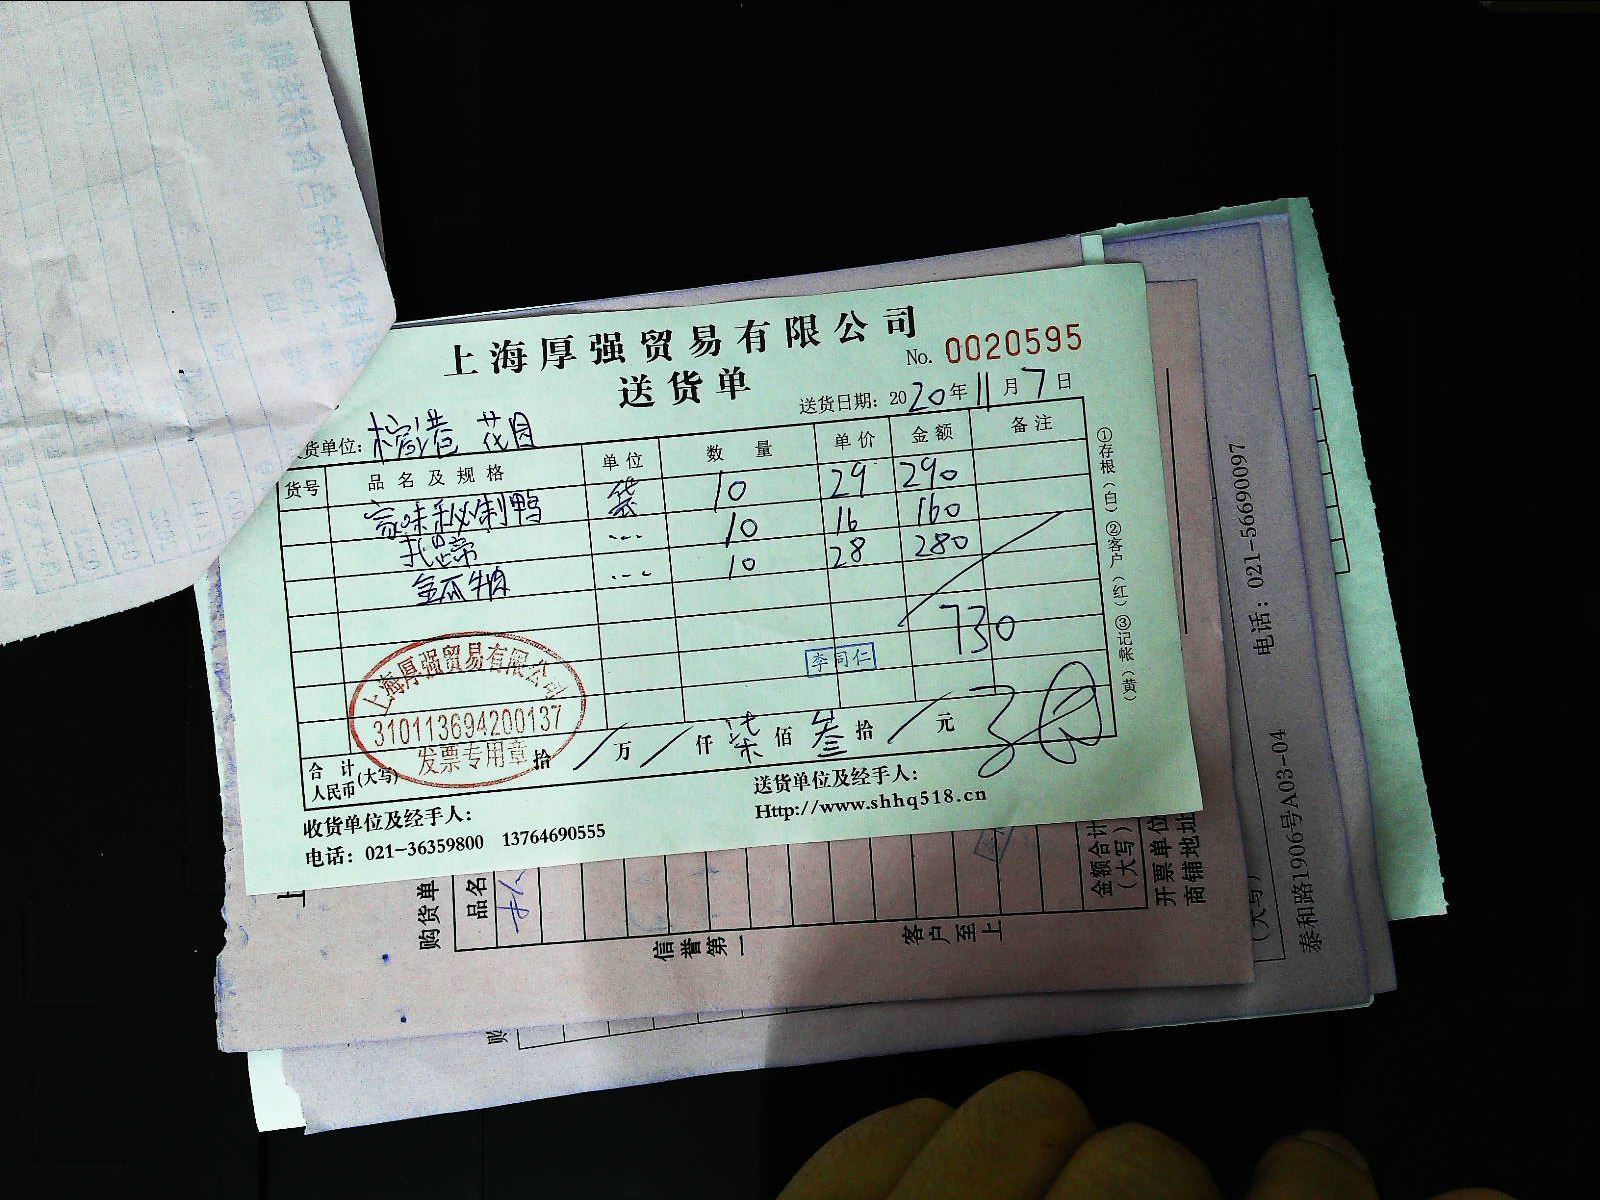 上海厚强贸易有限公司
No. 0020595
送货单
送货日期: 2020年11月7日
货单位: 花园
货号 品名及规格 单位 数量 单价 金额 备注
家味秘制鸭 袋 10 29 290
... 10 16 160
金瓜 ... 10 28 280
730
李同仁
上海厚强贸易有限公司
310113694200137
发票专用章
合计人民币(大写) 拾 / 万 / 仟 柒 佰 叁 拾 / 元
收货单位及经手人:
送货单位及经手人:
电话: 021-36359800 13764690555
Http://www.shhq518.cn
①存根(白) ②客户(红) ③记帐(黄)
购货单
品名
信誉第一
客户至上
金额合计
(大写)
开票单位
商铺地址
电话: 021-56690097
泰和路1906号A03-04
(大写)
购